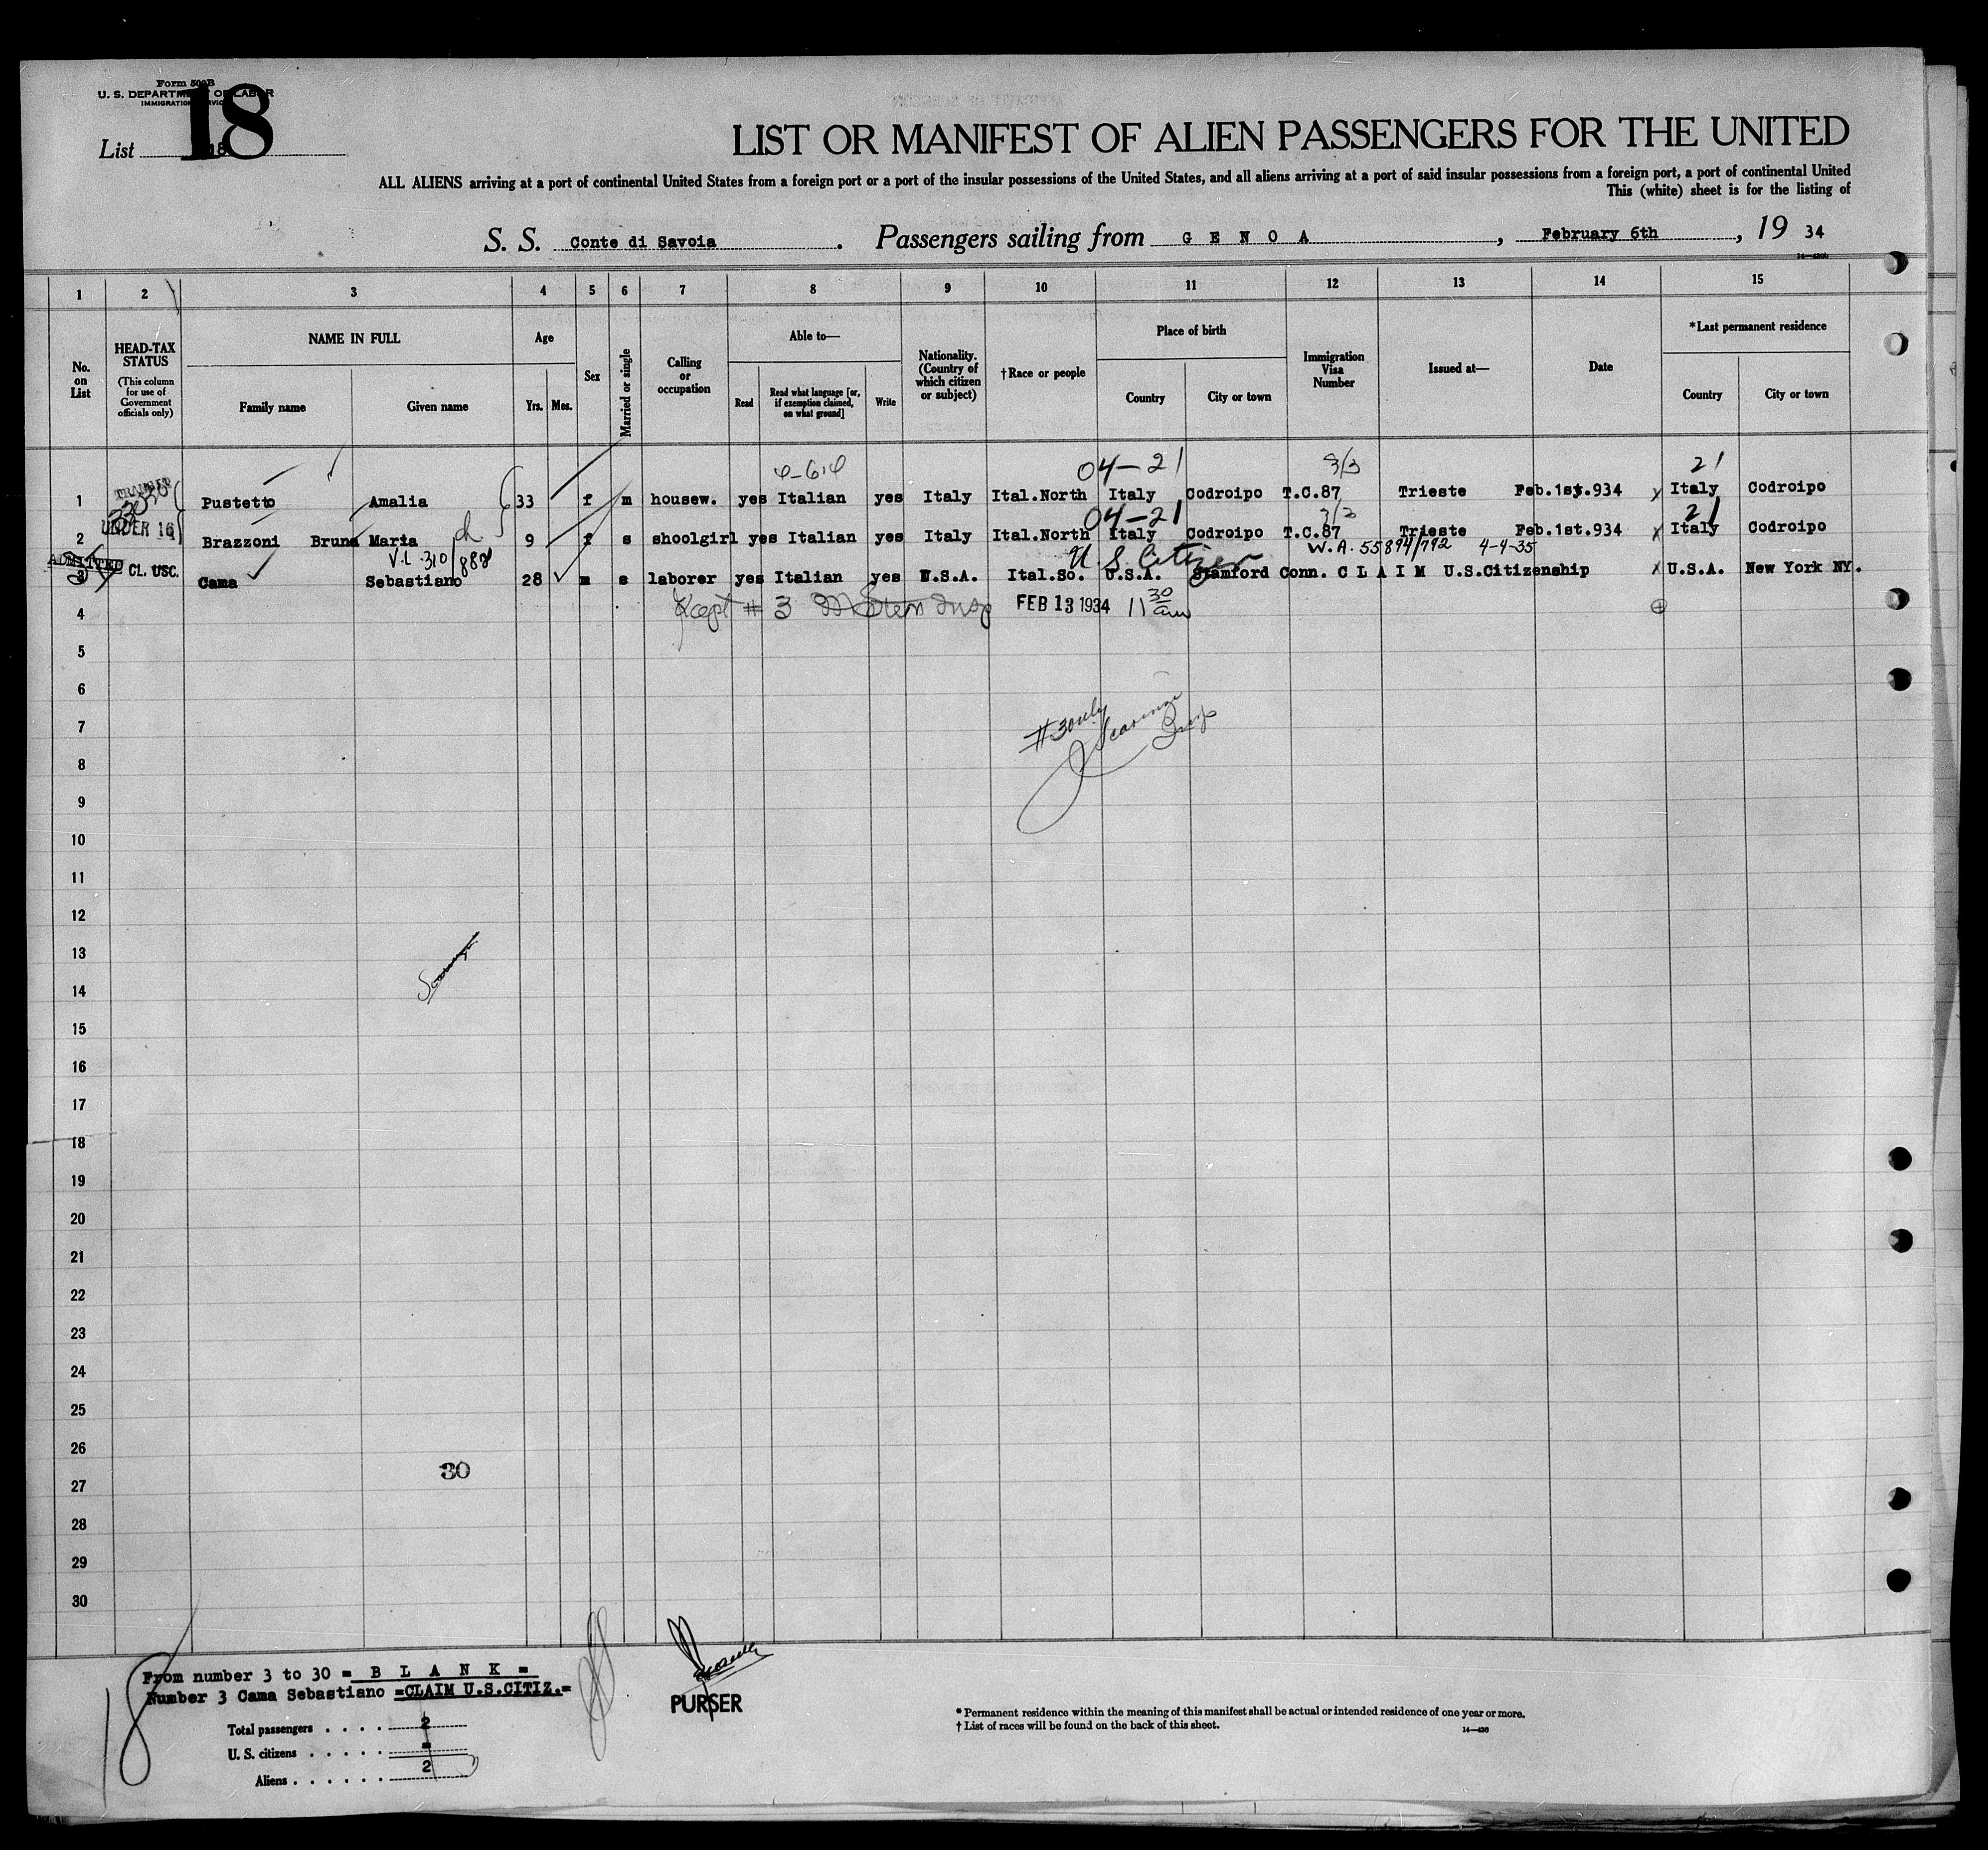 Form 500B
U. S. DEPARTMENT OF LABOR
IMMIGRATION SERVICE
18
List 18
LIST OR MANIFEST OF ALIEN PASSENGERS FOR THE UNITED
ALL ALIENS arriving at a port of continental United States from a foreign port or a port of the insular possessions of the United States, and all aliens arriving at a port of said insular possessions from a foreign port, a port of continental United
This (white) sheet is for the listing of
S. S. Conte di Savoia. Passengers sailing from G E N O A, February 6th, 19 34
1 2 3 4 5 6 7 8 9 10 11 12 13 14 15
No. on List
HEAD-TAX STATUS
(This column for use of Government officials only)
NAME IN FULL
Family name
Given name
Age
Yrs. Mos.
Sex
Married or single
Calling or occupation
Able to—
Read
Read what language [or, if exemption claimed, on what ground]
Write
Nationality. (Country of which citizen or subject)
†Race or people
Place of birth
Country
City or town
Immigration Visa Number
Issued at—
Date
*Last permanent residence
Country
City or town
04-21 3/3 21
TRANSIT
1 Pustetto Amalia 33 f m housew. yes Italian yes Italy Ital.North Italy Codroipo T.C.87 Trieste Feb.1st.934 x Italy Codroipo
04-21 3/3 21
UNDER 16
2 Brazzoni Bruna Maria 9 f s shoolgirl yes Italian yes Italy Ital.North Italy Codroipo T.C.87 Trieste Feb.1st.934 x Italy Codroipo
V.L. 310/888 U S Citizen W.A. 55894/792 4-4-35
ADMITTED CL. USC.
3 Cama Sebastiano 28 m s laborer yes Italian yes U.S.A. Ital.So. U.S.A. Stamford Conn. C L A I M U.S.Citizenship x U.S.A. New York NY.
4 # 3 Insp FEB 13 1934 11 30 am
5
6
7 #3 only
Insp
8
9
10
11
12
13
14
15
16
17
18
19
20
21
22
23
24
25
26
30
27
28
29
30
From number 3 to 30 = B L A N K =
Number 3 Cama Sebastiano =CLAIM U.S.CITIZ.=
18
PURSER
Total passengers . . . . 2
U. S. citizens . . . . . =
Aliens . . . . . . 2
* Permanent residence within the meaning of this manifest shall be actual or intended residence of one year or more.
† List of races will be found on the back of this sheet.
14—430